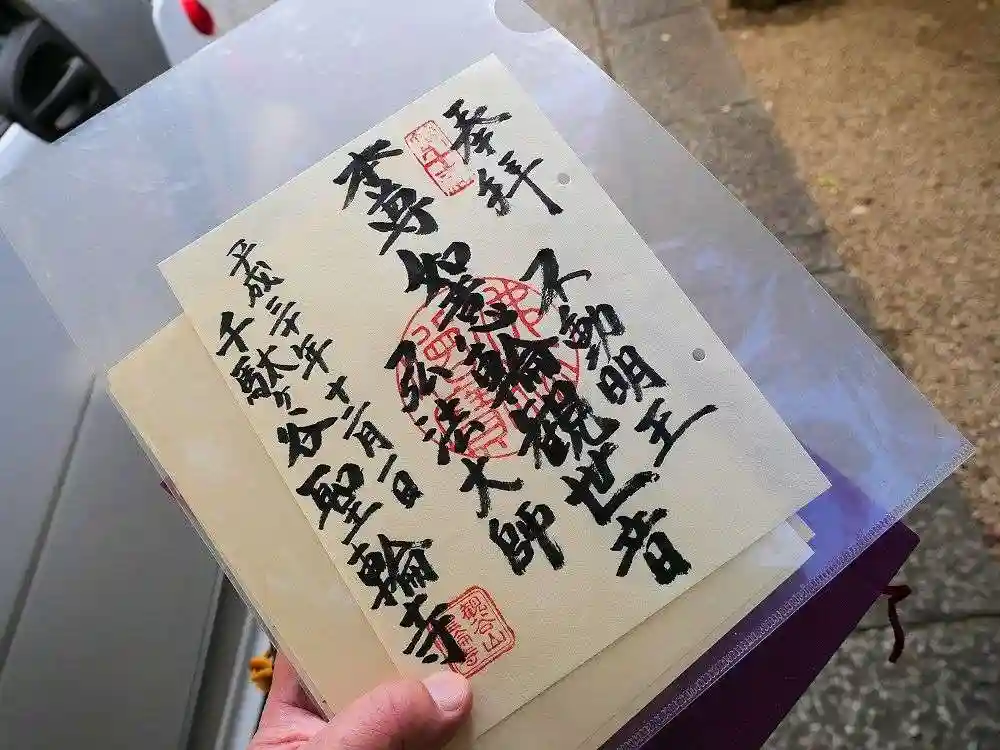 奉拝
不動明王
本尊 如意輪観世音
弘法大師
平成三十年 十二月一日
千駄ヶ谷聖輪寺
観谷山
聖輪寺